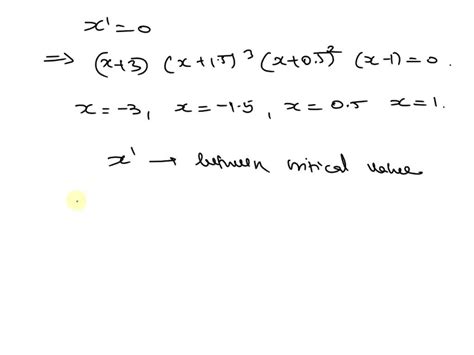 x' = 0
⇒ (x+3) (x+1.5)³ (x+0.5)² (x-1) = 0
x = -3, x = -1.5, x = 0.5 x = 1.
x' → between critical values